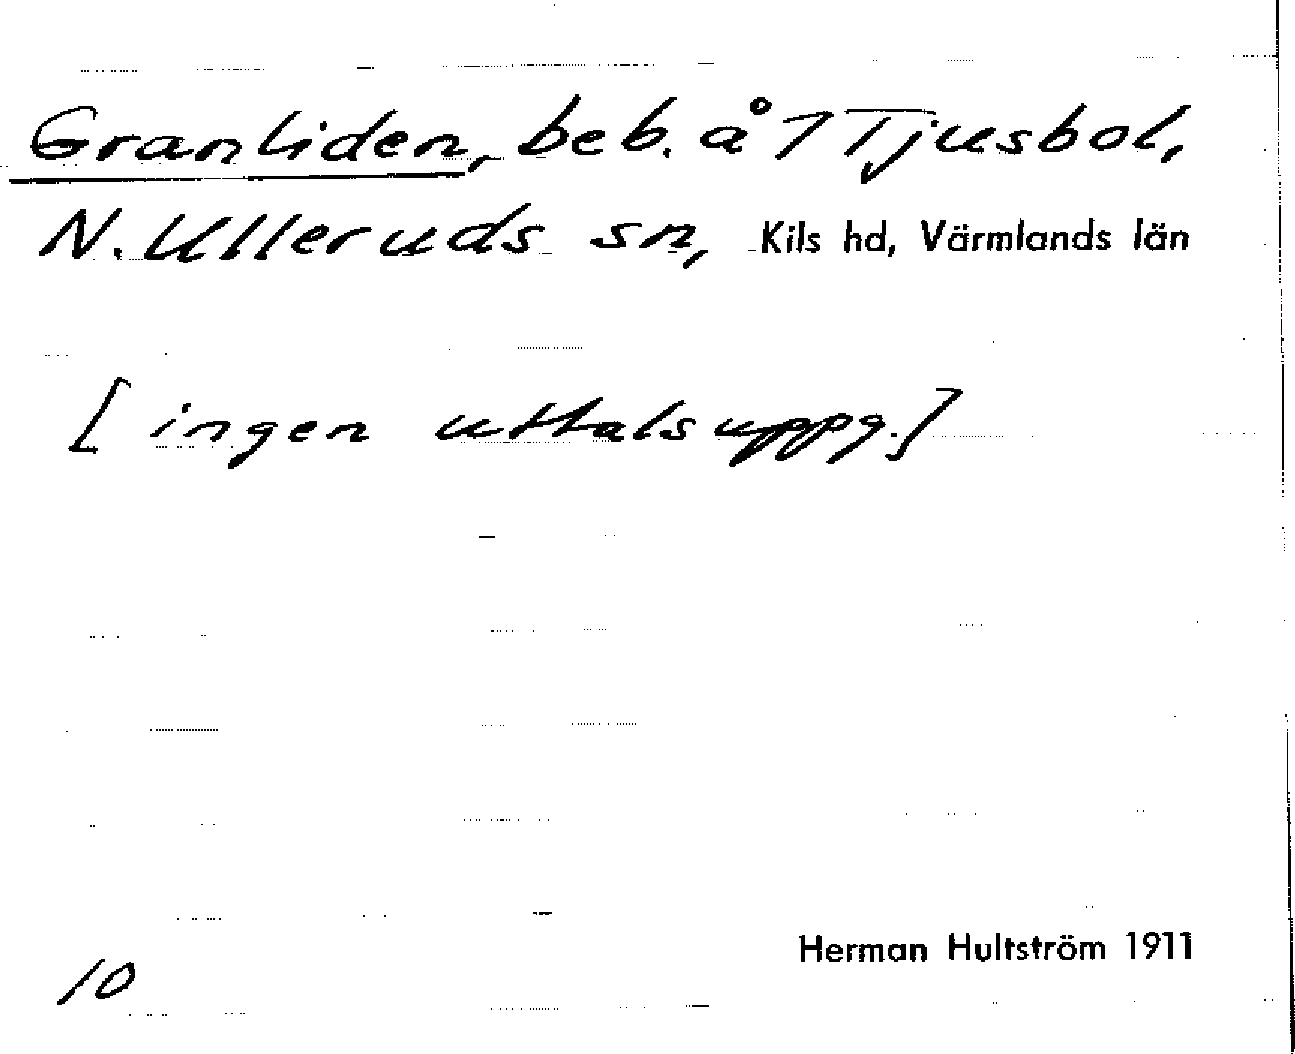 Granliden, beb. å 1 Tjusbol,
N. Ulleruds sn, Kils hd, Värmlands län
[ingen uttalsuppg.]
Herman Hultström 1911
10